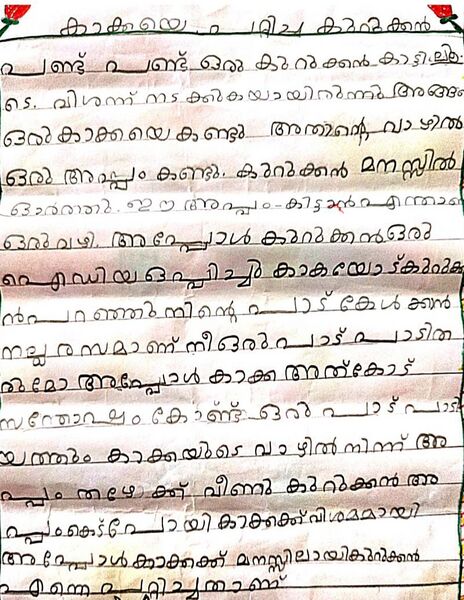 കാക്കയെ പറ്റിച്ച കുറുക്കൻ
പണ്ട് പണ്ട് ഒരു കുറുക്കൻ കാട്ടിലൂ
ടെ. വിശന്ന് നടക്കുകയായിരുന്നു അങ്ങനെ
ഒരു കാക്കയെ കണ്ടു അതാന്റെ വാഴിൽ
ഒരു അപ്പം കണ്ടു. കുറുക്കൻ മനസ്സിൽ
ഓർത്തു. ഈ അപ്പം കിട്ടാൻ എന്താണ്
ഒരു വഴി. അപ്പോൾ കുറുക്കൻ ഒരു
ഐഡിയ ഒപ്പിച്ചു കാകയോട് കുറുക്ക
ൻ പറഞ്ഞു നിന്റെ പാട് കേൾക്കൻ
നല്ല രസമാണ് നീ ഒരു പാട് പാടിത
രുമോ അപ്പോൾ കാക്ക അത്കോട്
സന്തോഷം കോണ്ട് ഒരു പാട് പാടി
യതും കാക്കയുടെ വാഴിൽ നിന്ന് അ
പ്പം തഴോക്ക് വീണു കുറുക്കൻ അ
പ്പംകെട്പോയി കാക്കക്ക് വിശമമായി
അപ്പോൾ കാക്കക്ക് മനസ്സിലായി കുറുക്കൻ
എന്നെ പറ്റിച്ചതാണ്